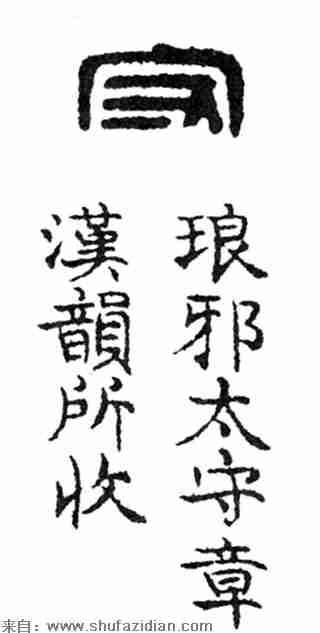 守
琅邪太守章
漢韻所收
来自：www.shufazidian.com